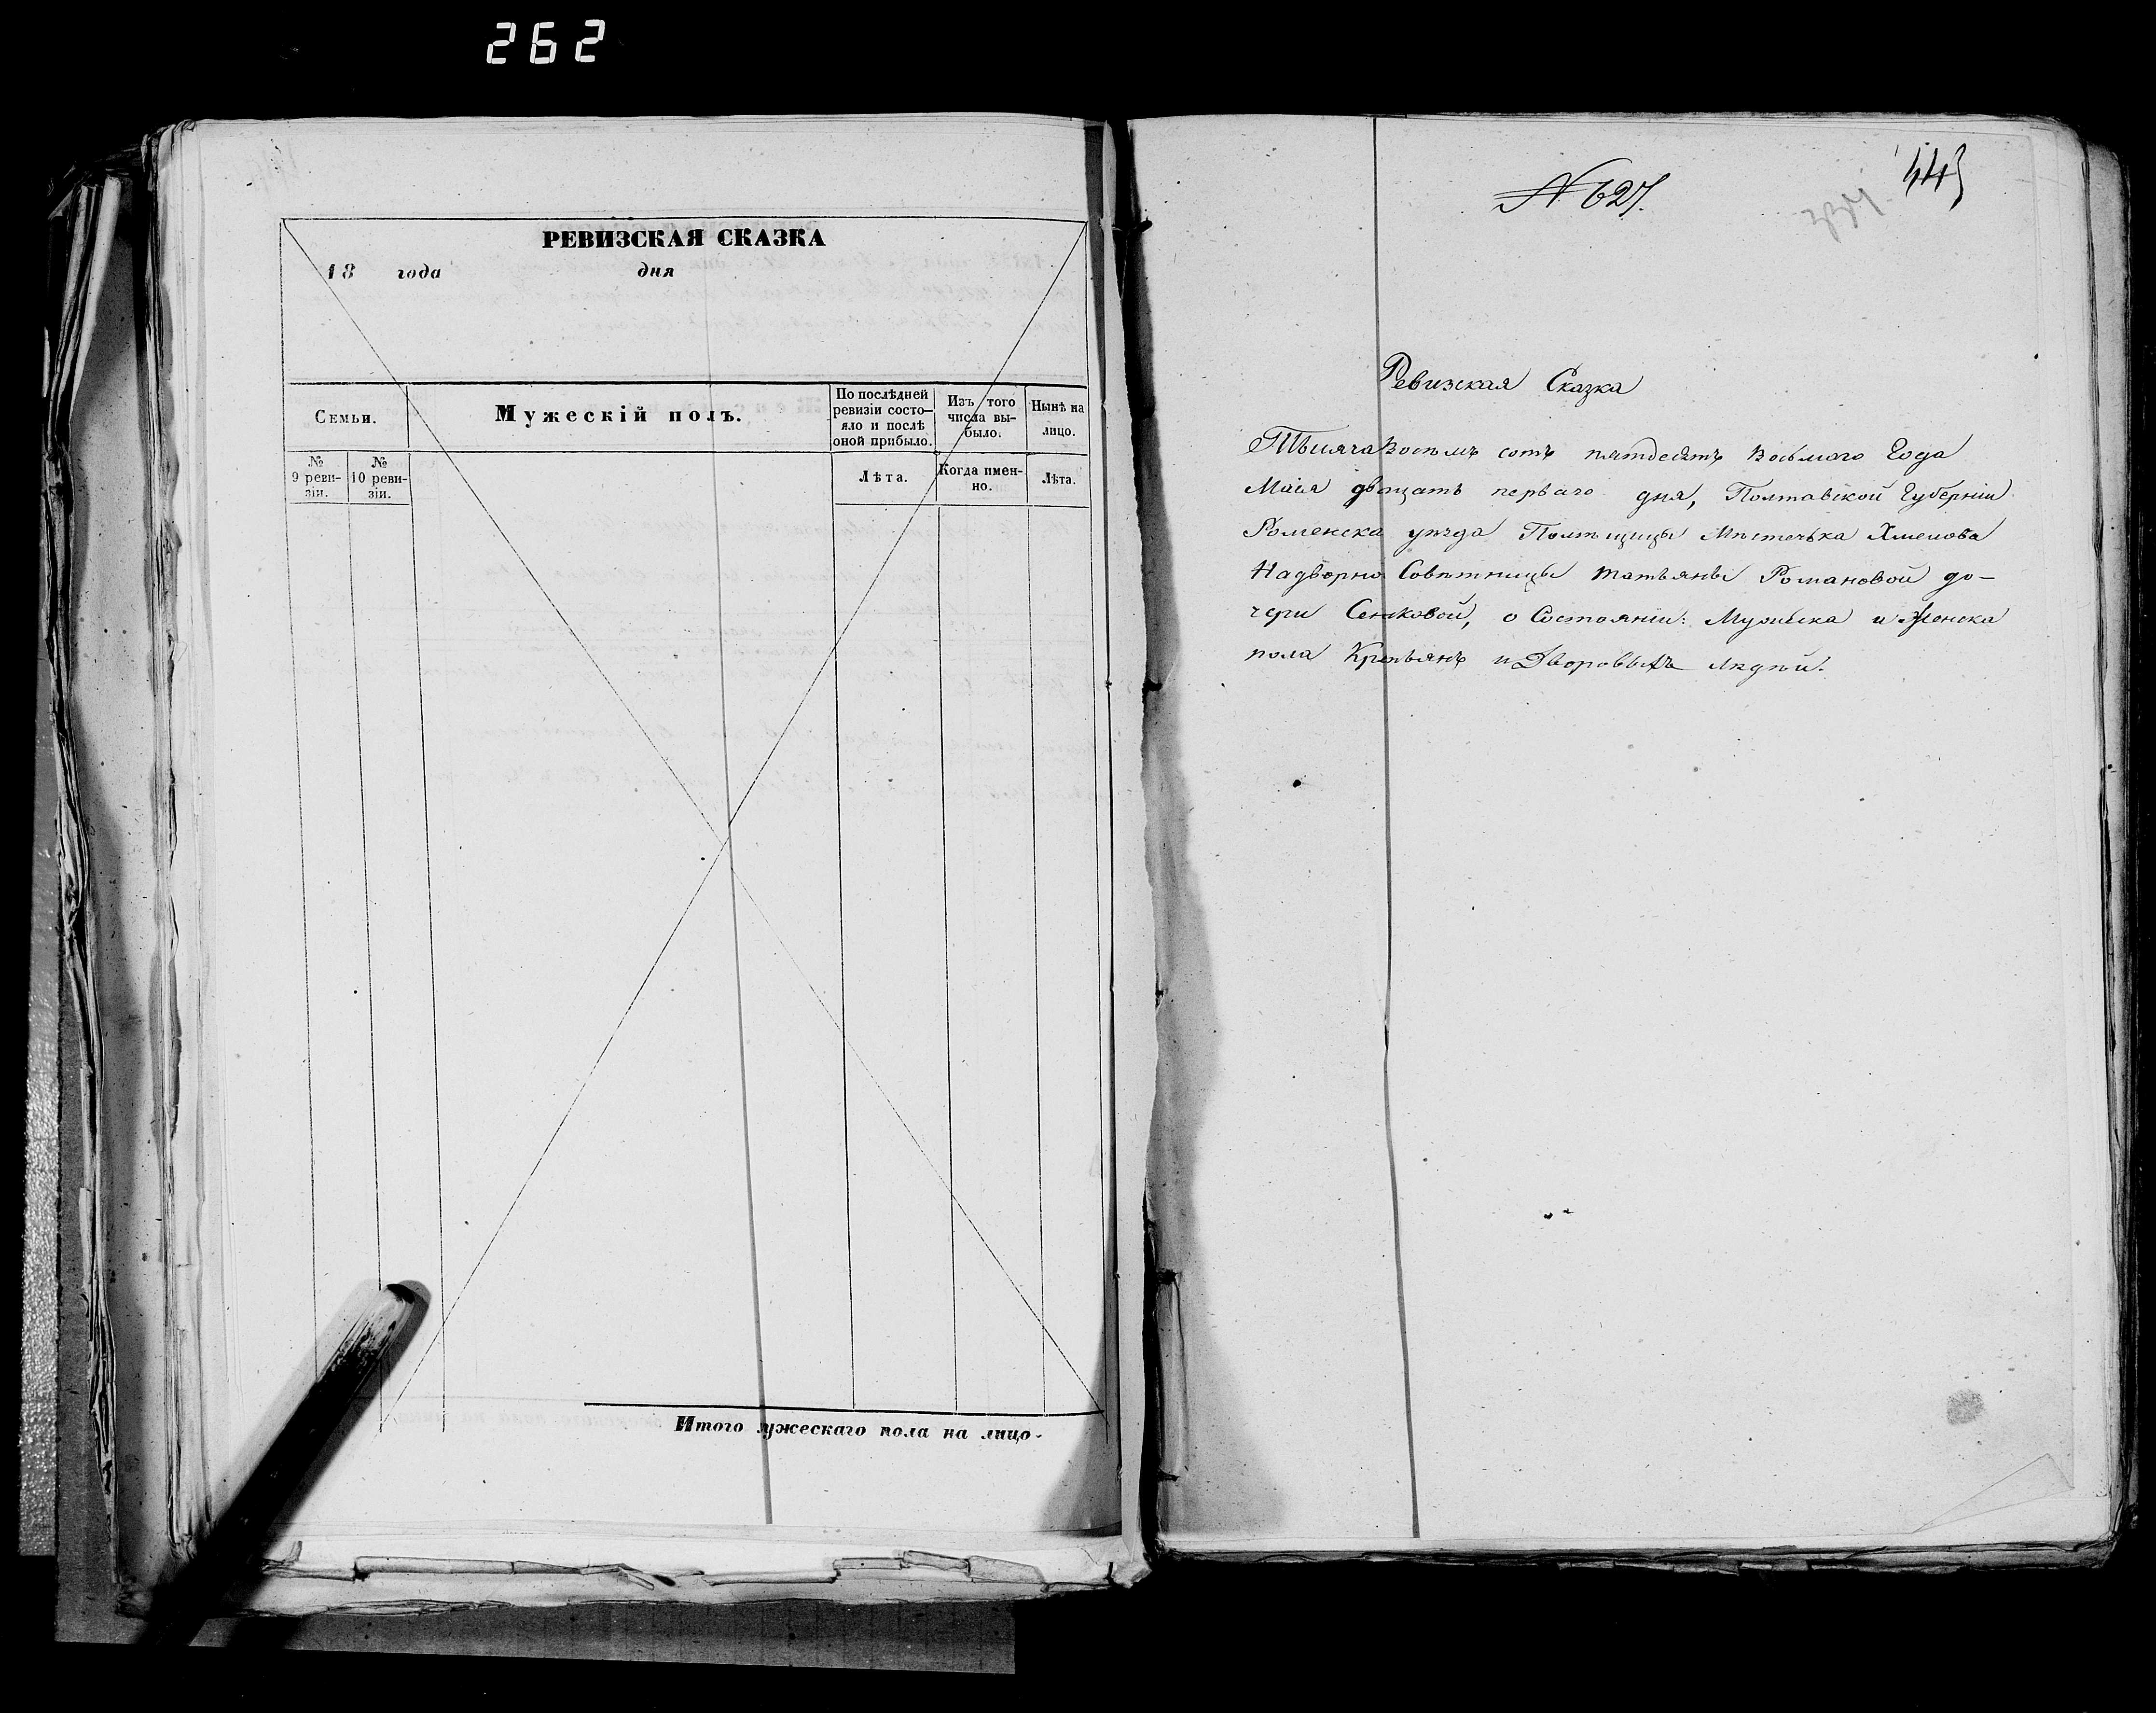 262
РЕВИЗСКАЯ СКАЗКА
18 года дня
Семьи.
Мужескій полъ.
По послѣдней ревизіи состо–яло и послѣ оной прибыло.
Изъ того числа вы-было.
Нынѣ на лицо.
№ 9 реви-зіи.
№ 10 реви-зіи.
Лѣта.
Когда имен-но.
Лѣта.
Итого мужескаго пола на лицо.
N 627.
Ревизская Сказка
Тысяча восемъ сотъ пятдесятъ восьмаго Года
Маія двацать перваго дня, Полтавской Губерніи
Роменска уезда Помѣщицы Мѣстечька Хмелова
Надворно Совѣтницы Татьяны Романовой до–
чери Сенковой, о Состояніи: Мужеска и Женска
пола Крестьянъ и Дворовыхъ людѣй.